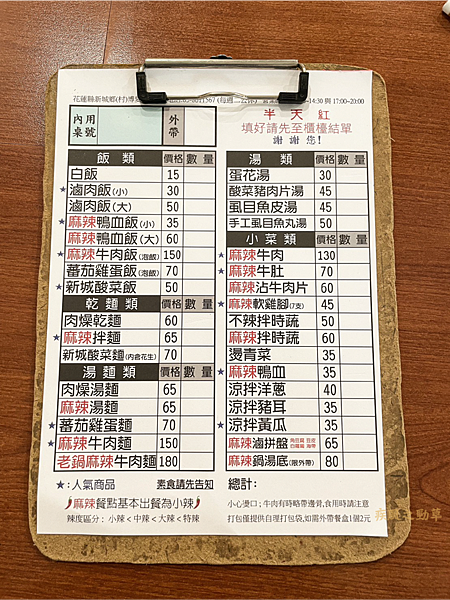 花蓮縣新城鄉(村)博 1567 (每週二公休) 14:30 與 17:00~20:00
內用桌號 外帶
半天紅
填好請先至櫃檯結單
謝謝您!
飯類 價格 數量
白飯 15
★滷肉飯(小) 30
滷肉飯(大) 50
★麻辣鴨血飯(小) 35
麻辣鴨血飯(大) 60
★麻辣牛肉飯(泡飯) 150
蕃茄雞蛋飯(泡飯) 70
★新城酸菜飯 50
乾麵類 價格 數量
肉燥乾麵 60
★麻辣拌麵 65
新城酸菜麵(內含花生) 70
湯麵類 價格 數量
肉燥湯麵 65
麻辣湯麵 65
★蕃茄雞蛋麵 70
★麻辣牛肉麵 150
老鍋麻辣牛肉麵 180
湯類 價格 數量
蛋花湯 30
酸菜豬肉片湯 45
虱目魚皮湯 45
手工虱目魚丸湯 50
小菜類 價格 數量
★麻辣牛肉 130
★麻辣牛肚 70
麻辣沾牛肉片 60
★麻辣軟雞腳(7支) 45
不辣拌時蔬 50
麻辣拌時蔬 60
燙青菜 35
★麻辣鴨血 35
涼拌洋蔥 40
涼拌豬耳 35
★涼拌黃瓜 35
麻辣滷拼盤 65
麻辣鍋湯底(限外帶) 80
★:人氣商品 素食請先告知
總計:
麻辣餐點基本出餐為小辣
辣度區分:小辣<中辣<大辣<特辣
小心燙口;牛肉有時略帶邊骨,食用時請注意
打包僅提供自理打包袋,如需外帶餐盒1個2元